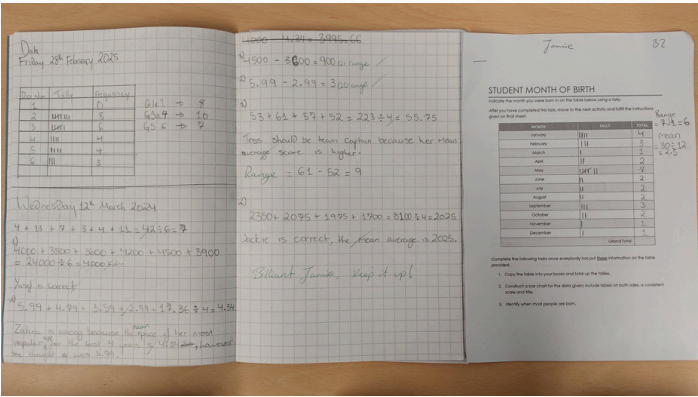 Date
Friday 28th February 2025
Tally Frequency
1 0
2 8
3 6
4 4
5 4
6 3
G1&2 → 8
G3&4 → 10
G5&6 → 7
Wednesday 12th March 2024
4 + 13 + 7 + 3 + 4 + 11 = 42 ÷ 6 = 7
4000 + 3800 + 3600 + 4200 + 4500 + 3900
= 24000 ÷ 6 = 4000
is correct
5.99 + 4.79 + 3.59 + 2.99 = 17.36 ÷ 4 = 4.34
is wrong because the mean of her most
popular for the last 4 years is 4.34, however
she thought it was 5.99.
4000 - 4.34 = 3995.66
4500 - 3600 = 900 range
5.99 - 2.99 = 3 range
53 + 61 + 57 + 52 = 223 ÷ 4 = 55.75
Tess should be team captain because her mean
average score is higher.
Range = 61 - 52 = 9
2350 + 2075 + 1975 + 1700 = 8100 ÷ 4 = 2025
Jackie is correct, the mean average is 2025.
Brilliant Jamie, keep it up!
Jamie 32
STUDENT MONTH OF BIRTH
Indicate the month you were born in on the table below using a tally.
After you have completed this task, move to the next activity and fulfil the instructions
given on that sheet.
MONTH TALLY TOTAL
January 4
February 3
March 1
April 2
May 7
June 2
July 2
August 2
September 3
October 2
November 1
December 1
Grand Total
Range
= 7-1 = 6
Mean
= 30 ÷ 12
= 2.5
Complete the following tasks once everybody has put their information on the table
provided.
1. Copy the table into your books and total up the tables.
2. Construct a bar chart for the data given include labels on both sides, a consistent
scale and title.
3. Identify when most people are born.